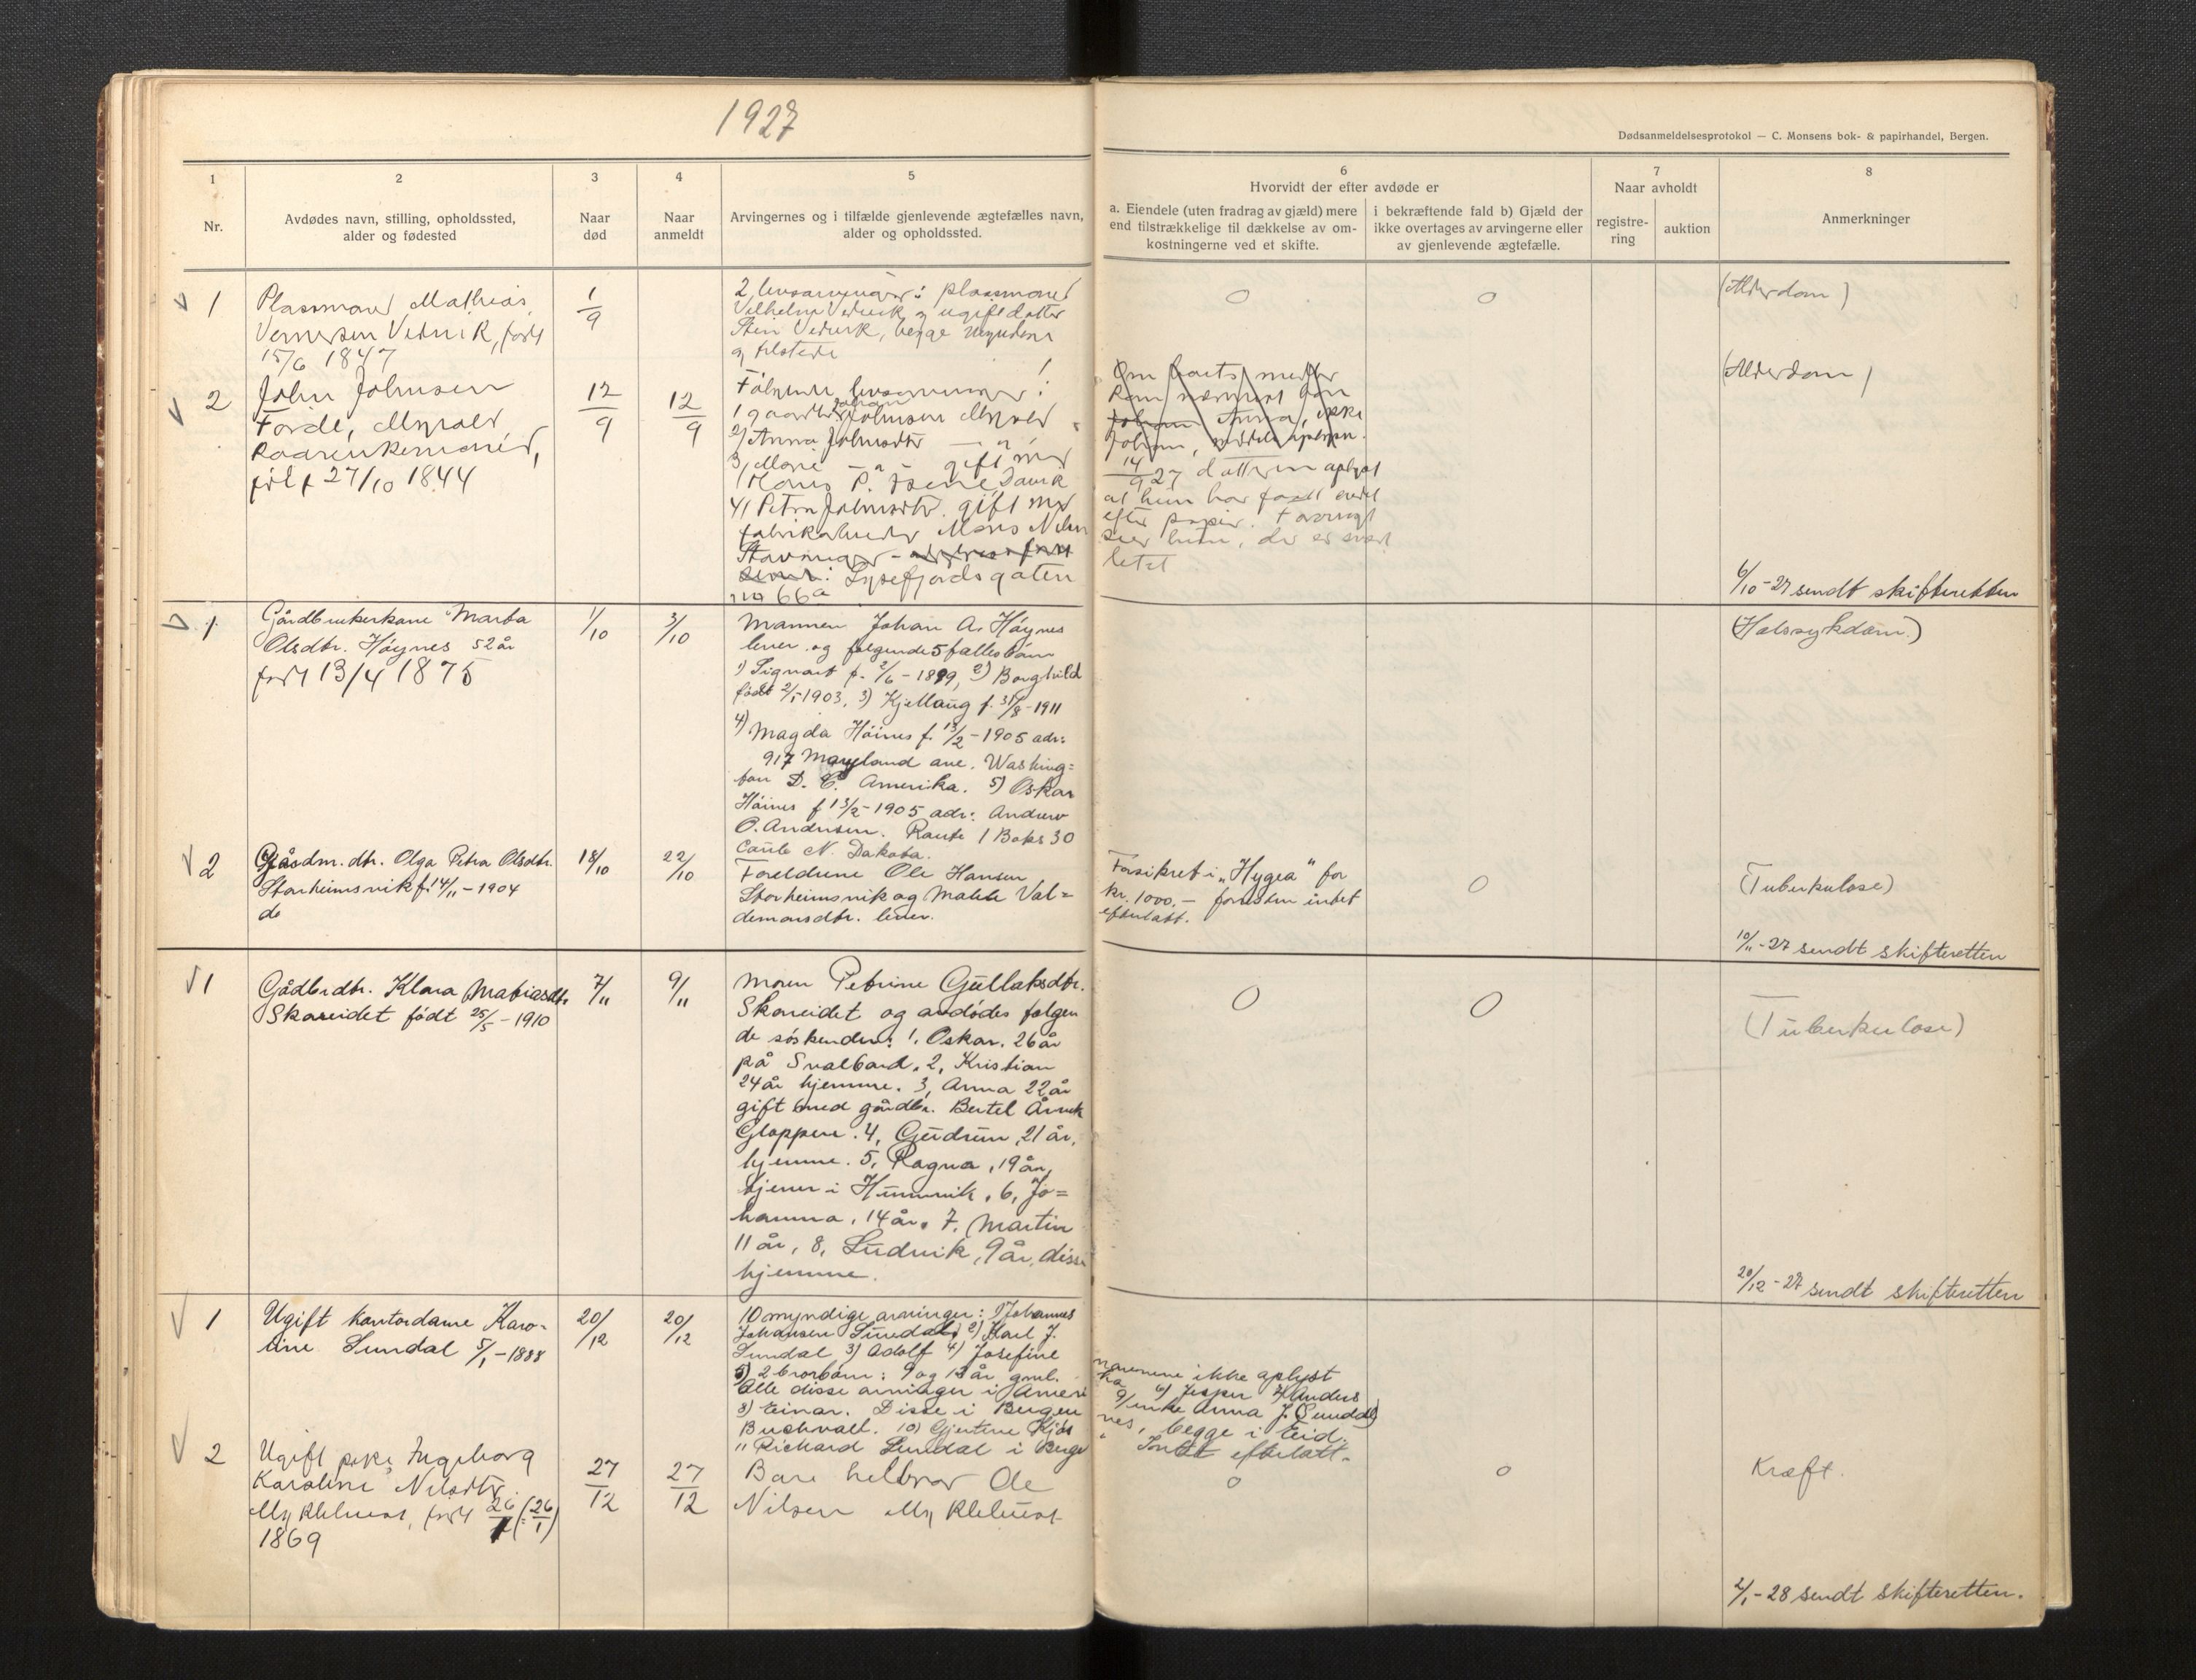 1927
Dødsanmeldelsesprotokol — C. Monsens bok- & papirhandel, Bergen.
1
2
3
4
5
6
7
8
Nr.
Avdødes navn, stilling, opholdssted,
alder og fødested
Naar
død
Naar
anmeldt
Arvingernes og i tilfælde gjenlevende ægtefælles navn,
alder og opholdssted.
Hvorvidt der efter avdøde er
a. Eiendele (uten fradrag av gjæld) mere
end tilstrækkelige til dækkelse av om-
kostningerne ved et skifte.
i bekræftende fald b) Gjæld der
ikke overtages av arvingerne eller
av gjenlevende ægtefælle.
Naar avholdt
registre-
ring
auktion
Anmerkninger
1
Plassmand Mathias
Vernersen Vedvik, født
15/6 1847
1/9
2 livsarvinger: plassmand
Vilhelm Vedvik og ugift datter
Vedvik, begge myndige
og tilstede
0
0
(Alderdom)
2
John Johnsen
Førde, Myrold,
kaarenkemand,
født 27/10 1844
12/9
12/9
Følgende livsarvinger:
1 gaardbr. Johan Johnsen Myrold
2) Anna Johnsdtr — " —
3, Marie — " — gift med
Hans P.
4) Petra Johnsdtr. gift med
fabrikarbeider Mons Nilsen
Stavanger
Lysefjordsgaten
no 66a
Anna, ikke
Johan,
14/9 27 datteren oplyst
at hun har faatt
efter papir. Forøvrigt
sier hun, der er
(Alderdom)
6/10-27 sendt skifteretten
1
Gårdbrukerkone Marta
Olsdtr. Høynes 52 år
født 13/4 1875
1/10
3/10
Mannen Johan A. Høynes
lever og følgende 5 fellesbarn
1) Signart f. 2/6-1899, 2) Borghild
født 2/5-1903, 3) Kjellaug f. 31/8-1911
4) Magda Høines f. 13/2-1905 adr:
917 Maryland ave. Washing=
ton D. C. Amerika. 5) Oskar
Høines f 13/2-1905 adr: Andrew
O. Andersen. Route 1 Boks 30
N. Dakota.
(Halssykdom.)
2
Gårdm. dtr. Olga Petra Olsdtr.
Storheimsvik f. 14/11-1904
do
18/10
22/10
Foreldrene Ole Hansen
Storheimsvik og Malene Val=
demarsdtr. lever.
Forsikret i „Hygea" for
kr. 1000.— forøvrig intet
efterlatt.
0
(Tuberkulose)
10/11-27 sendt skifteretten
1
Gådbrdtr. Klara Matiasdtr.
Skareidet født 25/5-1910
7/11
9/11
Moren Petrine Gullaksdtr.
Skareidet og avdødes følgen
de søskender: 1. Oskar. 26 år
på Svalbard. 2, Kristian
24 år hjemme. 3, Anna 22 år
gift med gårdbr. Bertel Årvik
Gloppen. 4, Gudrun, 21 år,
hjemme. 5, Ragna, 19 år,
tjener i Hummvik, 6, Jo=
hanna, 14 år. 7. Martin
11 år, 8, Ludvik, 9 år, disse
hjemme.
0
0
(Tuberkulose)
20/12-27 sendt skifteretten
1
Ugift kontordame Karo-
line Sundal 5/1-1888
20/12
20/12
10 myndige arvinger: 1) Johannes
Johansen Sundal, 2) Karl J.
Sundal 3) Adolf 4) Josefine
5) 2 brorbarn: 9 og 13 år gml.
Alle disse arvinger i Ameri
8) Einar. Disse i Bergen
Buchvall. 10) Gjertine Kjøs
11 Rickard Sundal i Berge
navnene ikke oplyst
ka
6) Jesper 7) Anders
9/enke Anna J. Sundal
nes, begge i Eid.
Intet efterlatt.
2
Ugift pike Ingeborg
Karoline Nilsdtr.
Myklebust, født 26/1 (: 26/1)
1869
27/12
27/12
Bare helbror Ole
Nilsen Myklebust
0
0
Kræft.
2/1-28 sendt skifteretten.